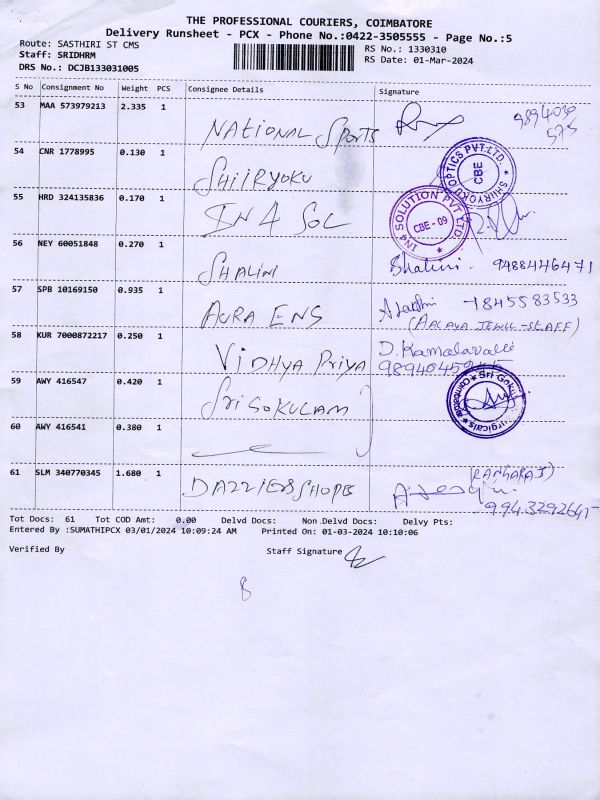 THE PROFESSIONAL COURIERS, COIMBATORE
Delivery Runsheet - PCX - Phone No.:0422-3505555 - Page No.:5
Route: SASTHIRI ST CMS
RS No.: 1330310
Staff: SRIDHRM
RS Date: 01-Mar-2024
DRS No.: DCJB133031005
S No Consignment No Weight PCS Consignee Details Signature
53 MAA 573979213 2.335 1 NATIONAL Sports
54 CNR 1778995 0.130 1 SHIIRYOKU
SHIIRYOKU OPTICS PVT.LTD. CBE
55 HRD 324135836 0.170 1 IN 4 SOL
IN4 SOLUTION PVT LTD. CBE - 09
56 NEY 60051848 0.270 1 SHALINI Shalini. 9488446471
57 SPB 10169150 0.935 1 AURA ENS 7845583533
(AALAYA JEWLL-STAFF)
58 KUR 7000872217 0.250 1 VIDHYA Priya D. Kamalavalli
59 AWY 416547 0.420 1 Sri GOKULAM
Sri Gokul Surgicals Coimbatore
60 AWY 416541 0.380 1
61 SLM 340770345 1.680 1 DAZZIERSHOPE (RANGARAJ)
9943292645
Tot Docs: 61 Tot COD Amt: 0.00 Delvd Docs: Non.Delvd Docs: Delvy Pts:
Entered By :SUMATHIPCX 03/01/2024 10:09:24 AM Printed On: 01-03-2024 10:10:06
Verified By Staff Signature
8